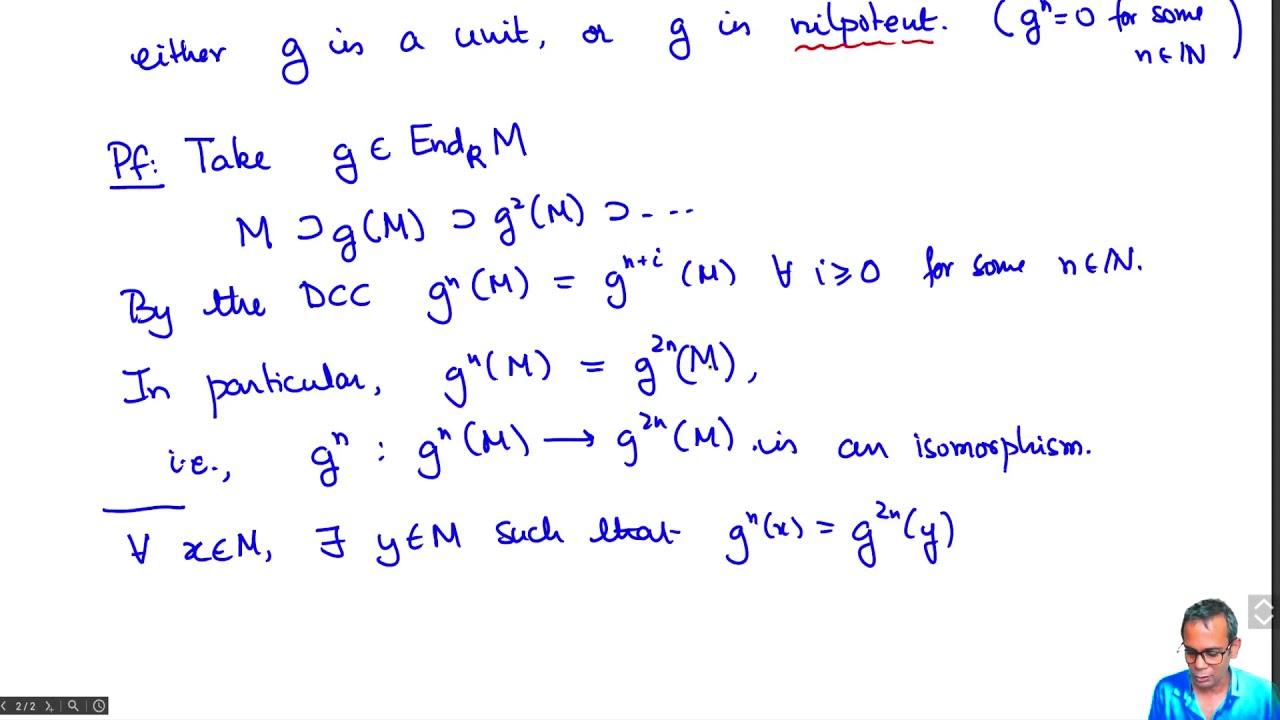 either g is a unit, or g is nilpotent. (gⁿ=0 for some n∈ℕ)
Pf: Take g ∈ End_R M
M ⊃ g(M) ⊃ g²(M) ⊃ ...
By the DCC gⁿ(M) = gⁿ⁺ⁱ(M) ∀ i⩾0 for some n∈ℕ.
In particular, gⁿ(M) = g²ⁿ(M),
i.e., gⁿ : gⁿ(M) → g²ⁿ(M) is an isomorphism.
∀ x∈M, ∃ y∈M such that gⁿ(x) = g²ⁿ(y)
2/2